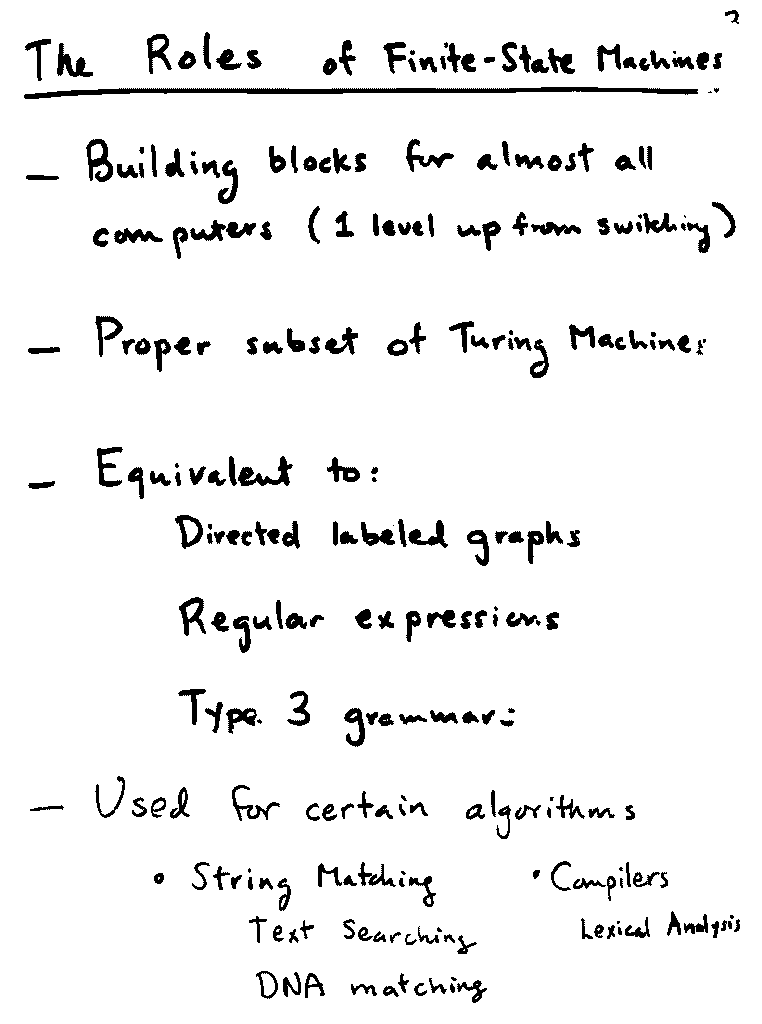 The Roles of Finite-State Machines
— Building blocks for almost all
computers (1 level up from switching)
— Proper subset of Turing Machines
— Equivalent to:
Directed labeled graphs
Regular expressions
Type 3 grammars
— Used for certain algorithms
• String Matching • Compilers
Text Searching Lexical Analysis
DNA matching